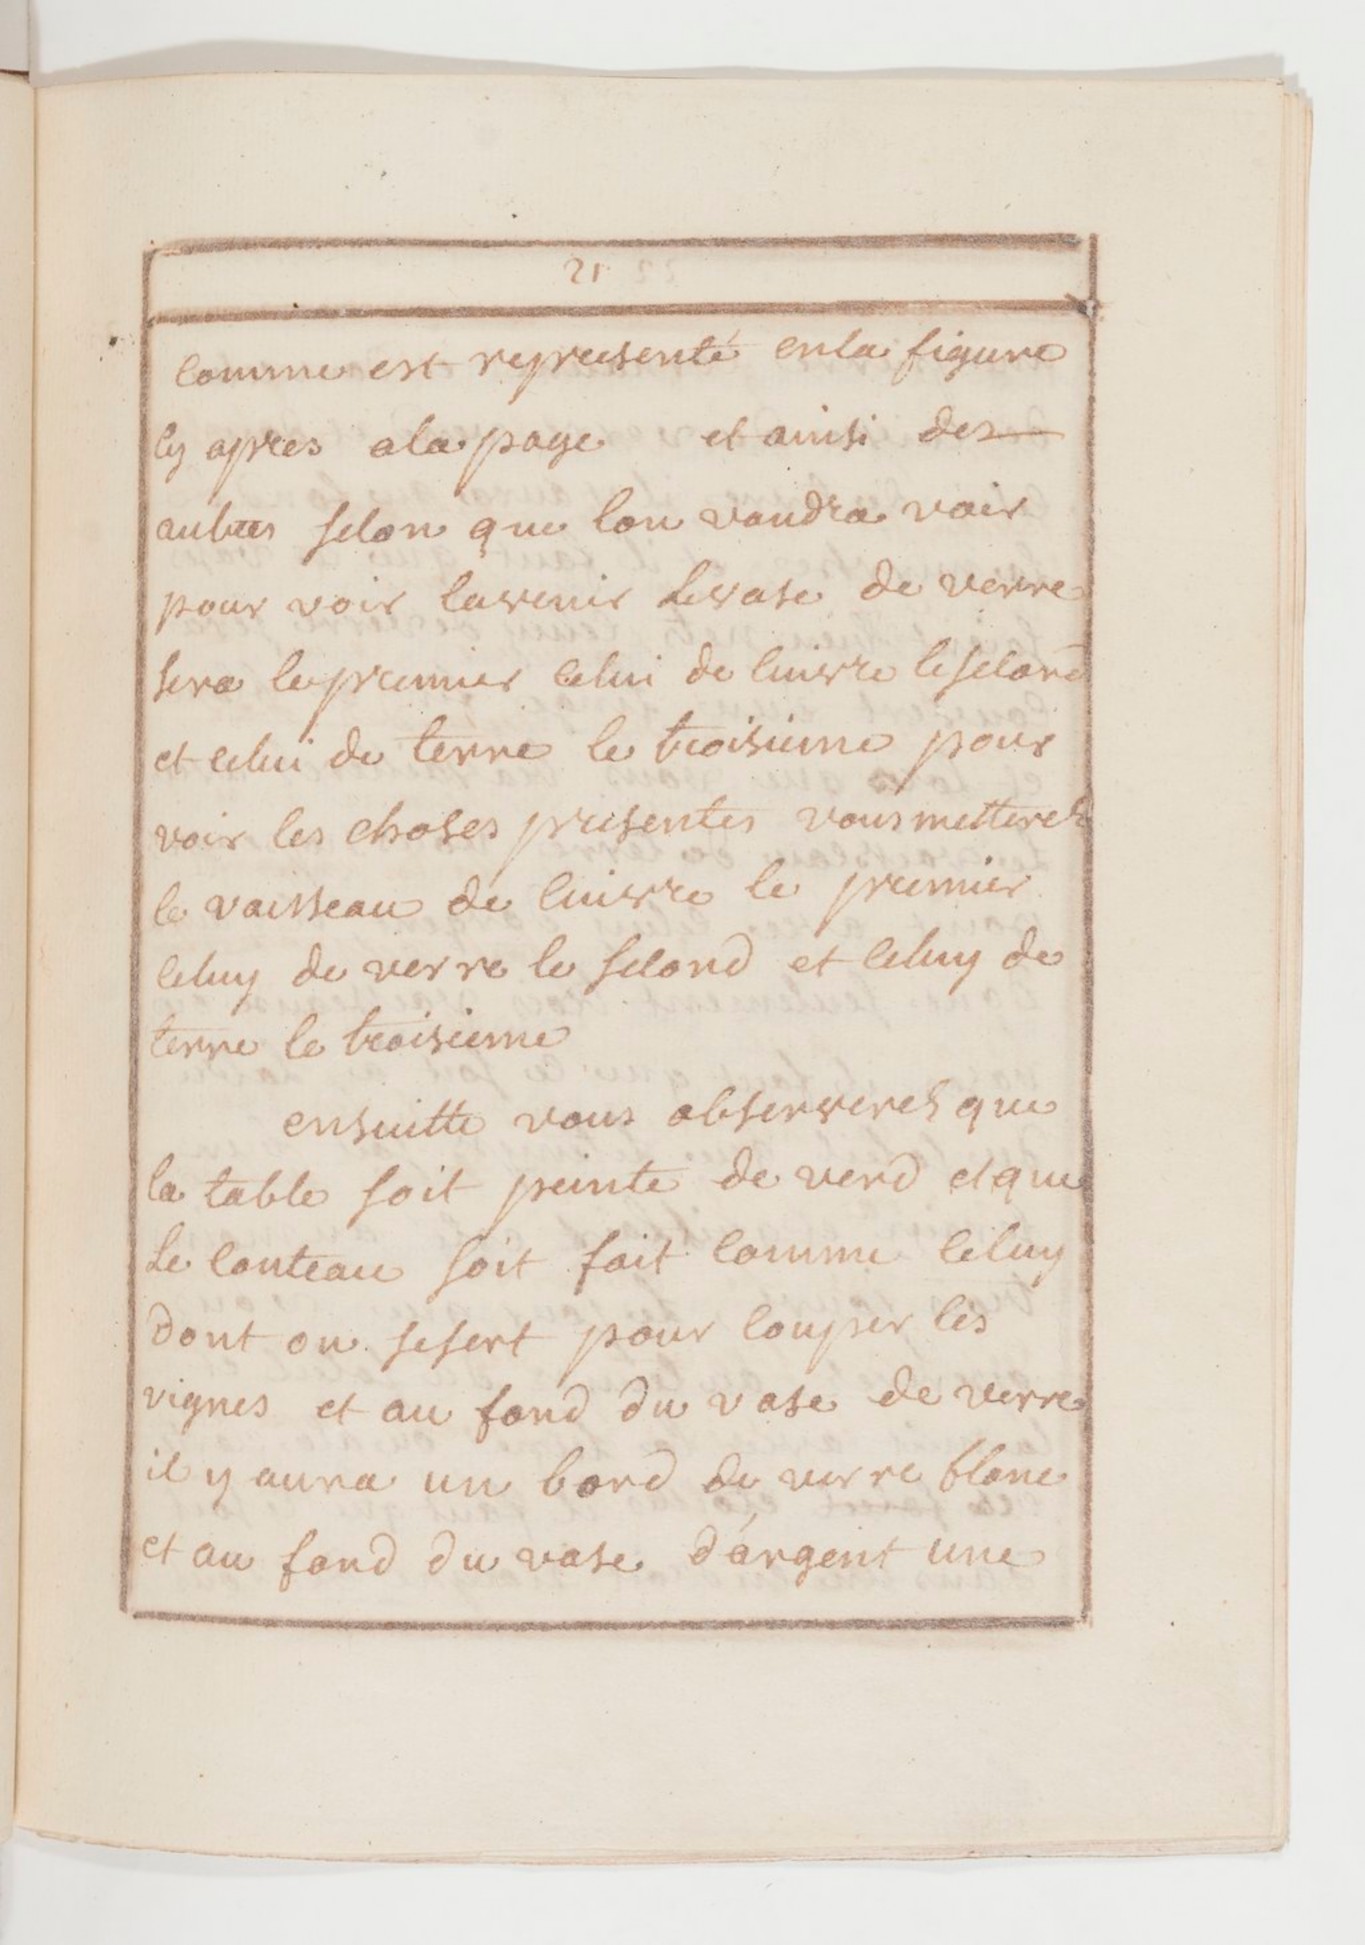 21
comme est representé enla figure
cy apres ala page et ainsi des
autres selon que lon voudra voir
pour voir lavenir Levase de verre
sera lepremier celui de cuivre lesecond
et celui de terre le troisieme pour
voir les choses presentes vous mettereés
le vaisseau de cuivre le premier
celuy de verre le second et celuy de
terre le troisieme
ensuitte vous observereés que
la table soit peinte de verd et que
Le couteau soit fait comme celuy
dont on sesert pour couper les
vignes et au fond du vase de verre
il y aura un bord de verre blanc
et au fond du vase d'argent une